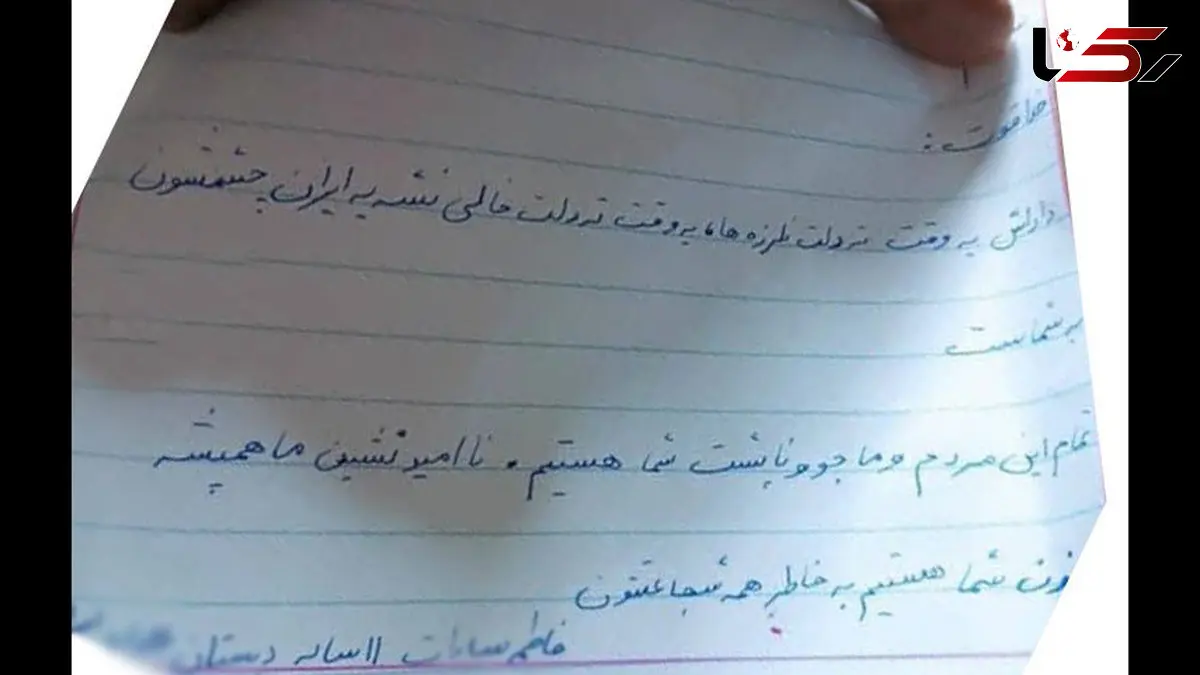 رکنا
خدا قوت:
داداش یه وقت ته دلت نلرزه ها، یه وقت ته دلت خالی نشه یه ایران چشمشون
به شماست
تمام این مردم و ما جوونا پشت شما هستیم. ناامید نشین ما همیشه
شما هستیم به خاطر همه شجاعتتون
فاطمه سادات ۱۱ ساله دبستان